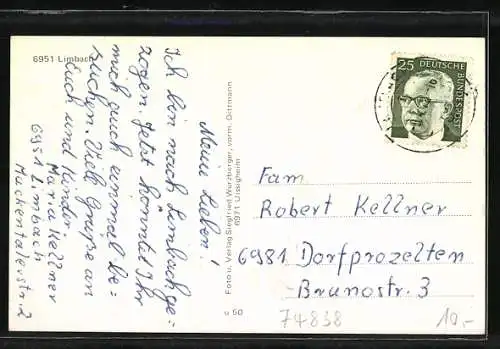 6951 Limbach
Meine Lieben!
Ich bin nach Limbach ge-
zogen. Jetzt könntet Ihr
mich auch einmal be-
suchen. Viele Grüße an
Euch und Kinder
Maria Kellner
6951 Limbach
Muckentalerstr. 2
Foto u. Verlag Siegfried Werzberger, vorm. Dittmann
6971 Uissigheim
u 60
25 DEUTSCHE
BUNDESPOST
Fam
Robert Kellner
6981 Dorfprozelten
Brunostr. 3
74838
10,-